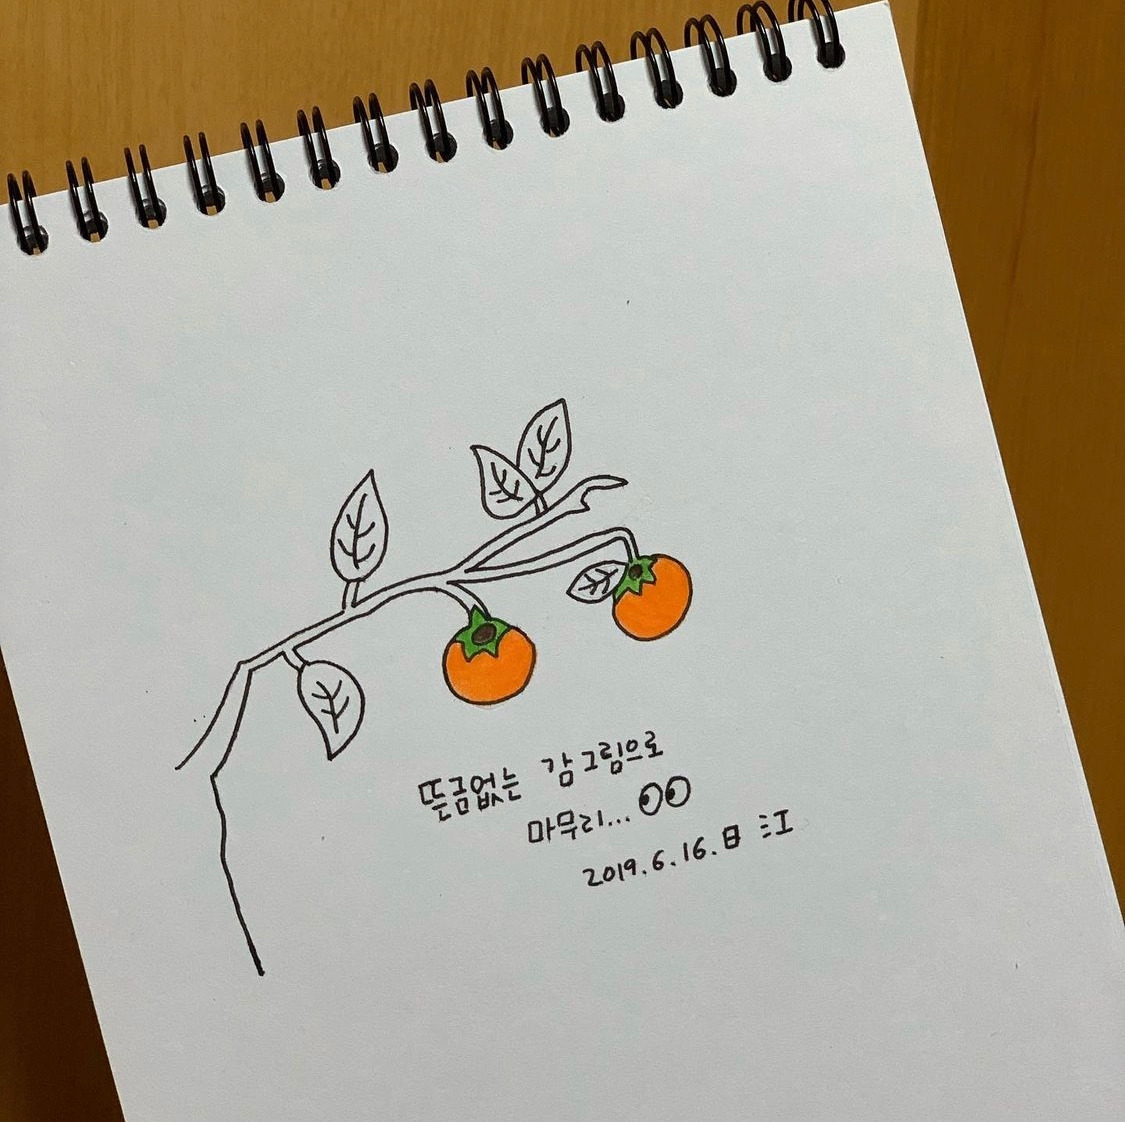 뜬금없는 감그림으로
마무리...
2019.6.16.日 江